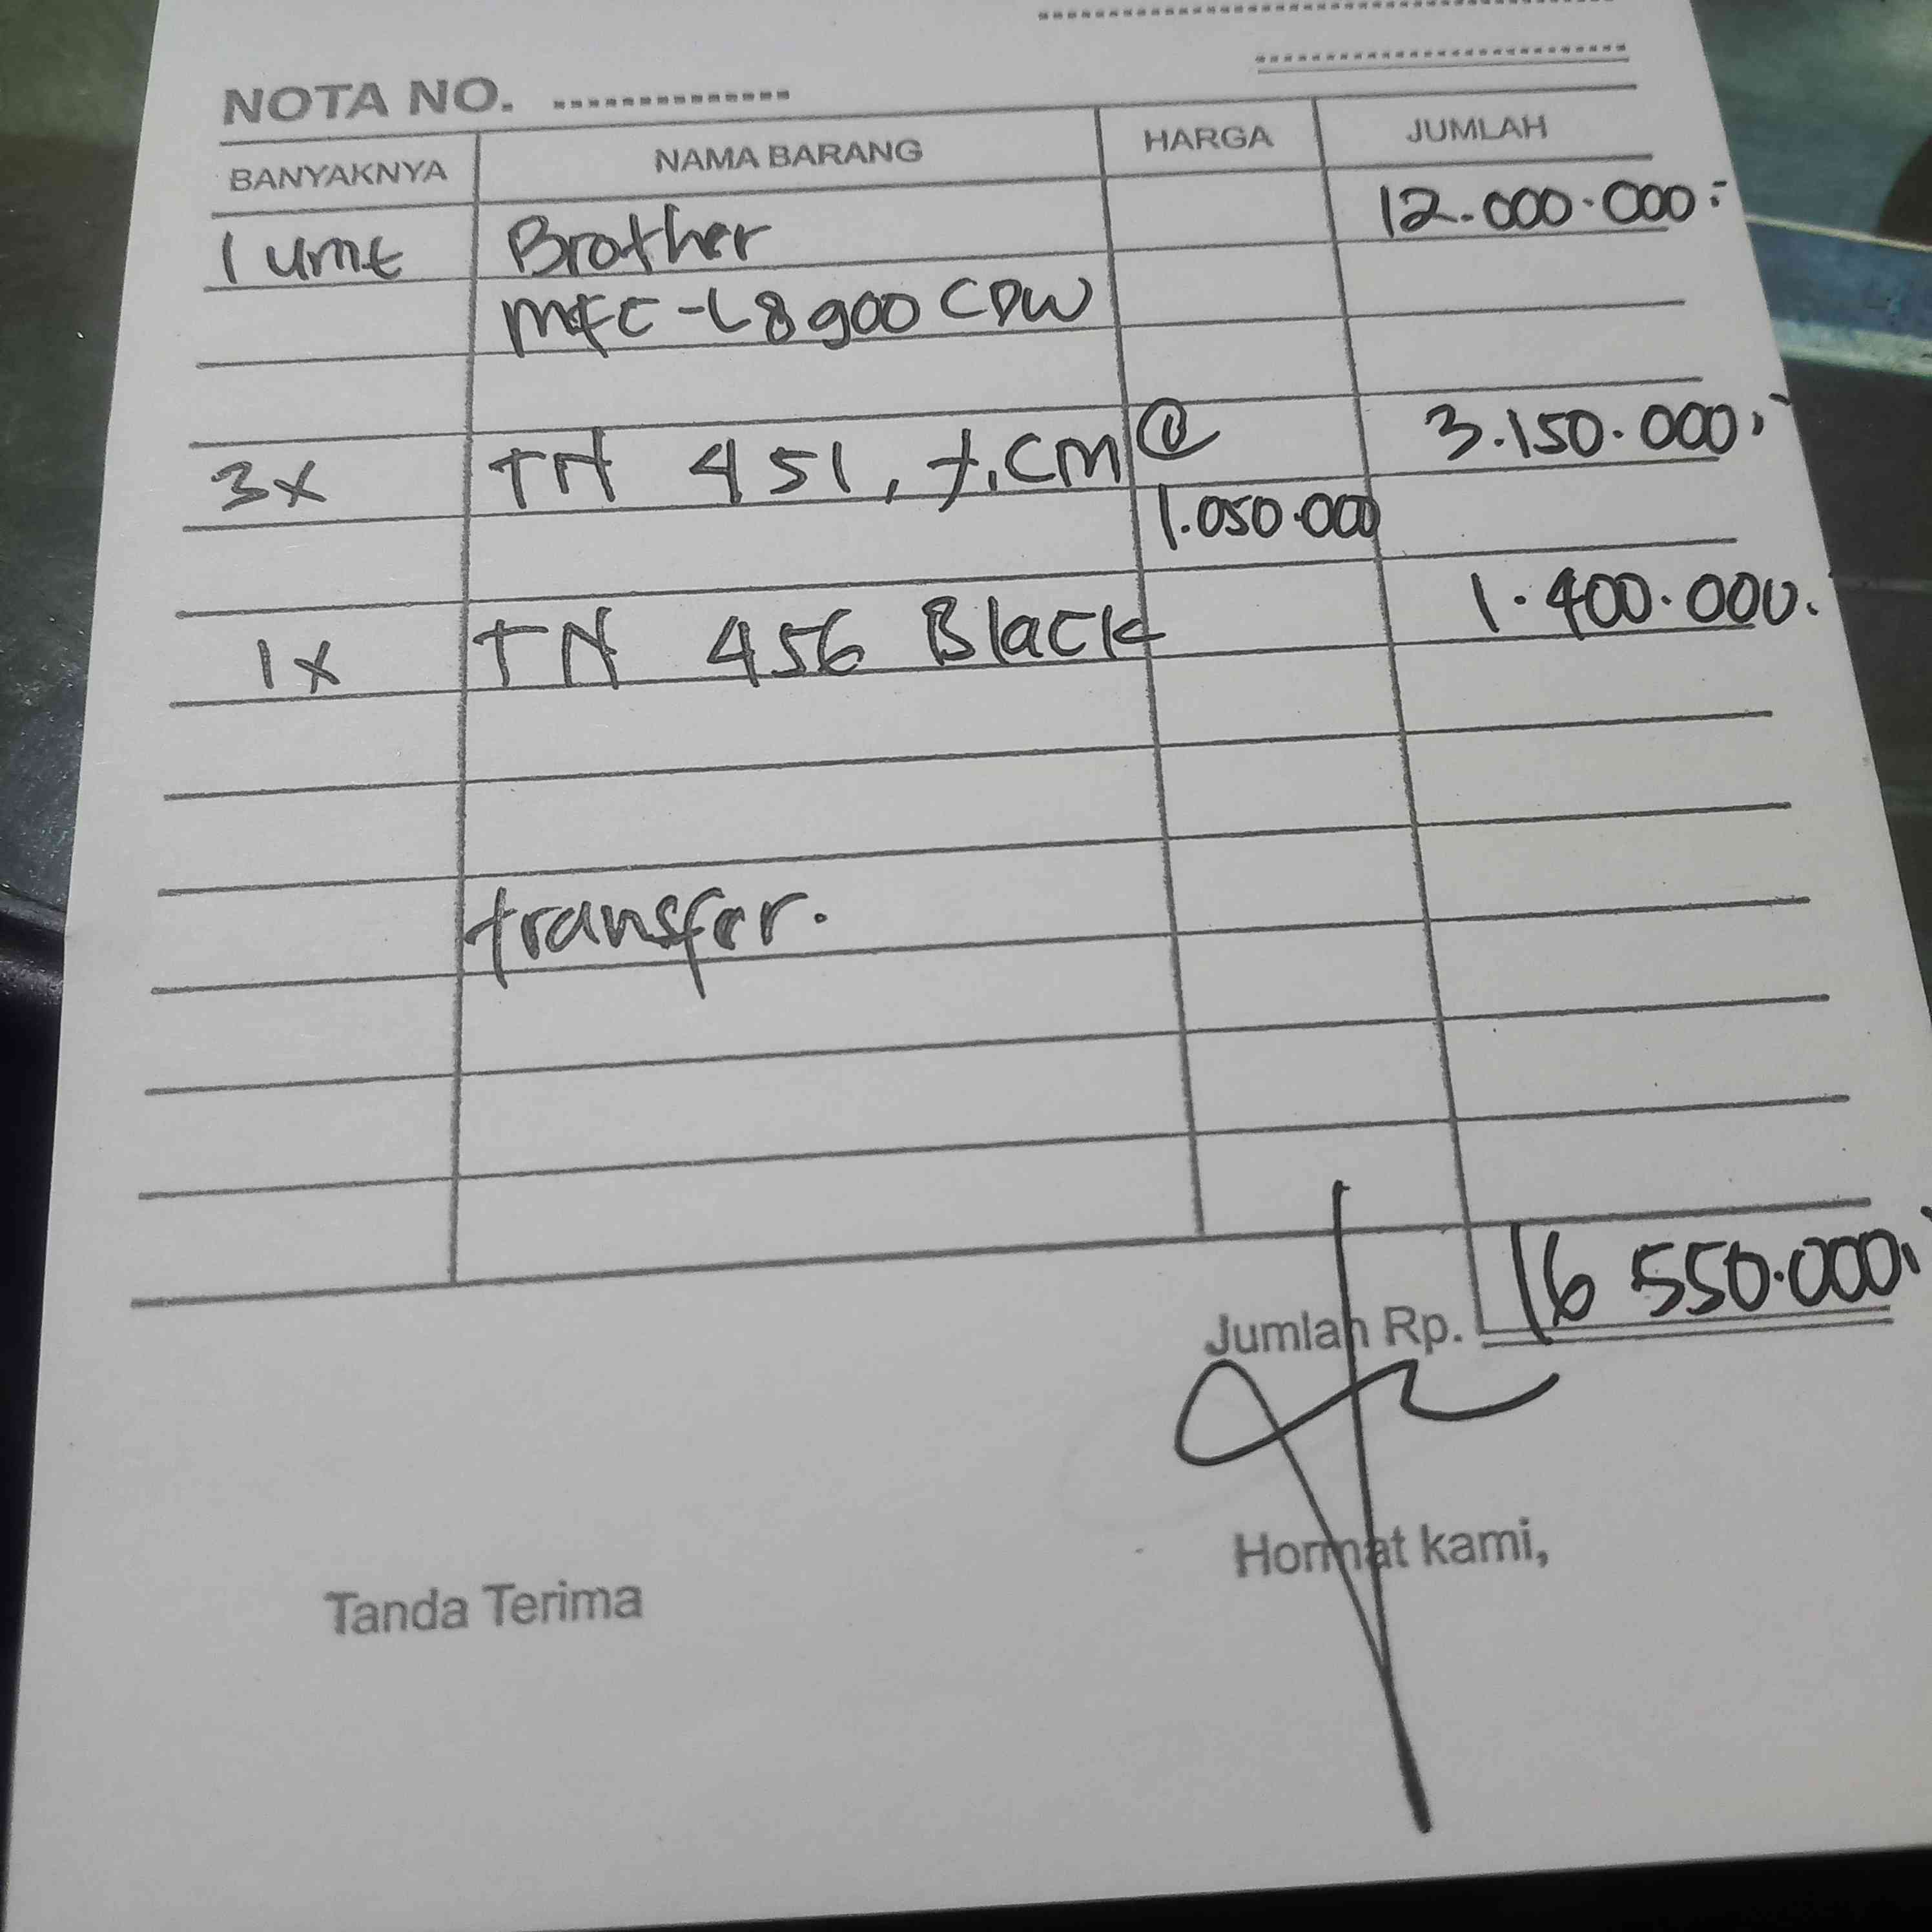 NOTA NO. ..............
BANYAKNYA NAMA BARANG HARGA JUMLAH
1 unit Brother 12.000.000,-
MFC-L8900 CDW
3x TN 451, Y, C M @ 3.150.000,-
1.050.000
1x TN 456 Black 1.400.000,-
transfer.
Jumlah Rp. 16 550.000,-
Tanda Terima Hormat kami,